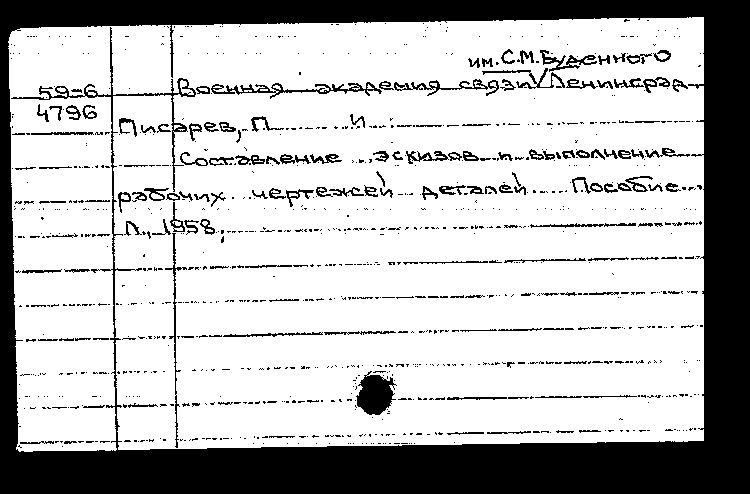 им. С.М. Буденного
59-6 Военная академия связи Ленинград.
4796
Писарев, П И
Составление эскизов и выполнение
рабочих чертежей деталей. Пособие.
Л., 1958,